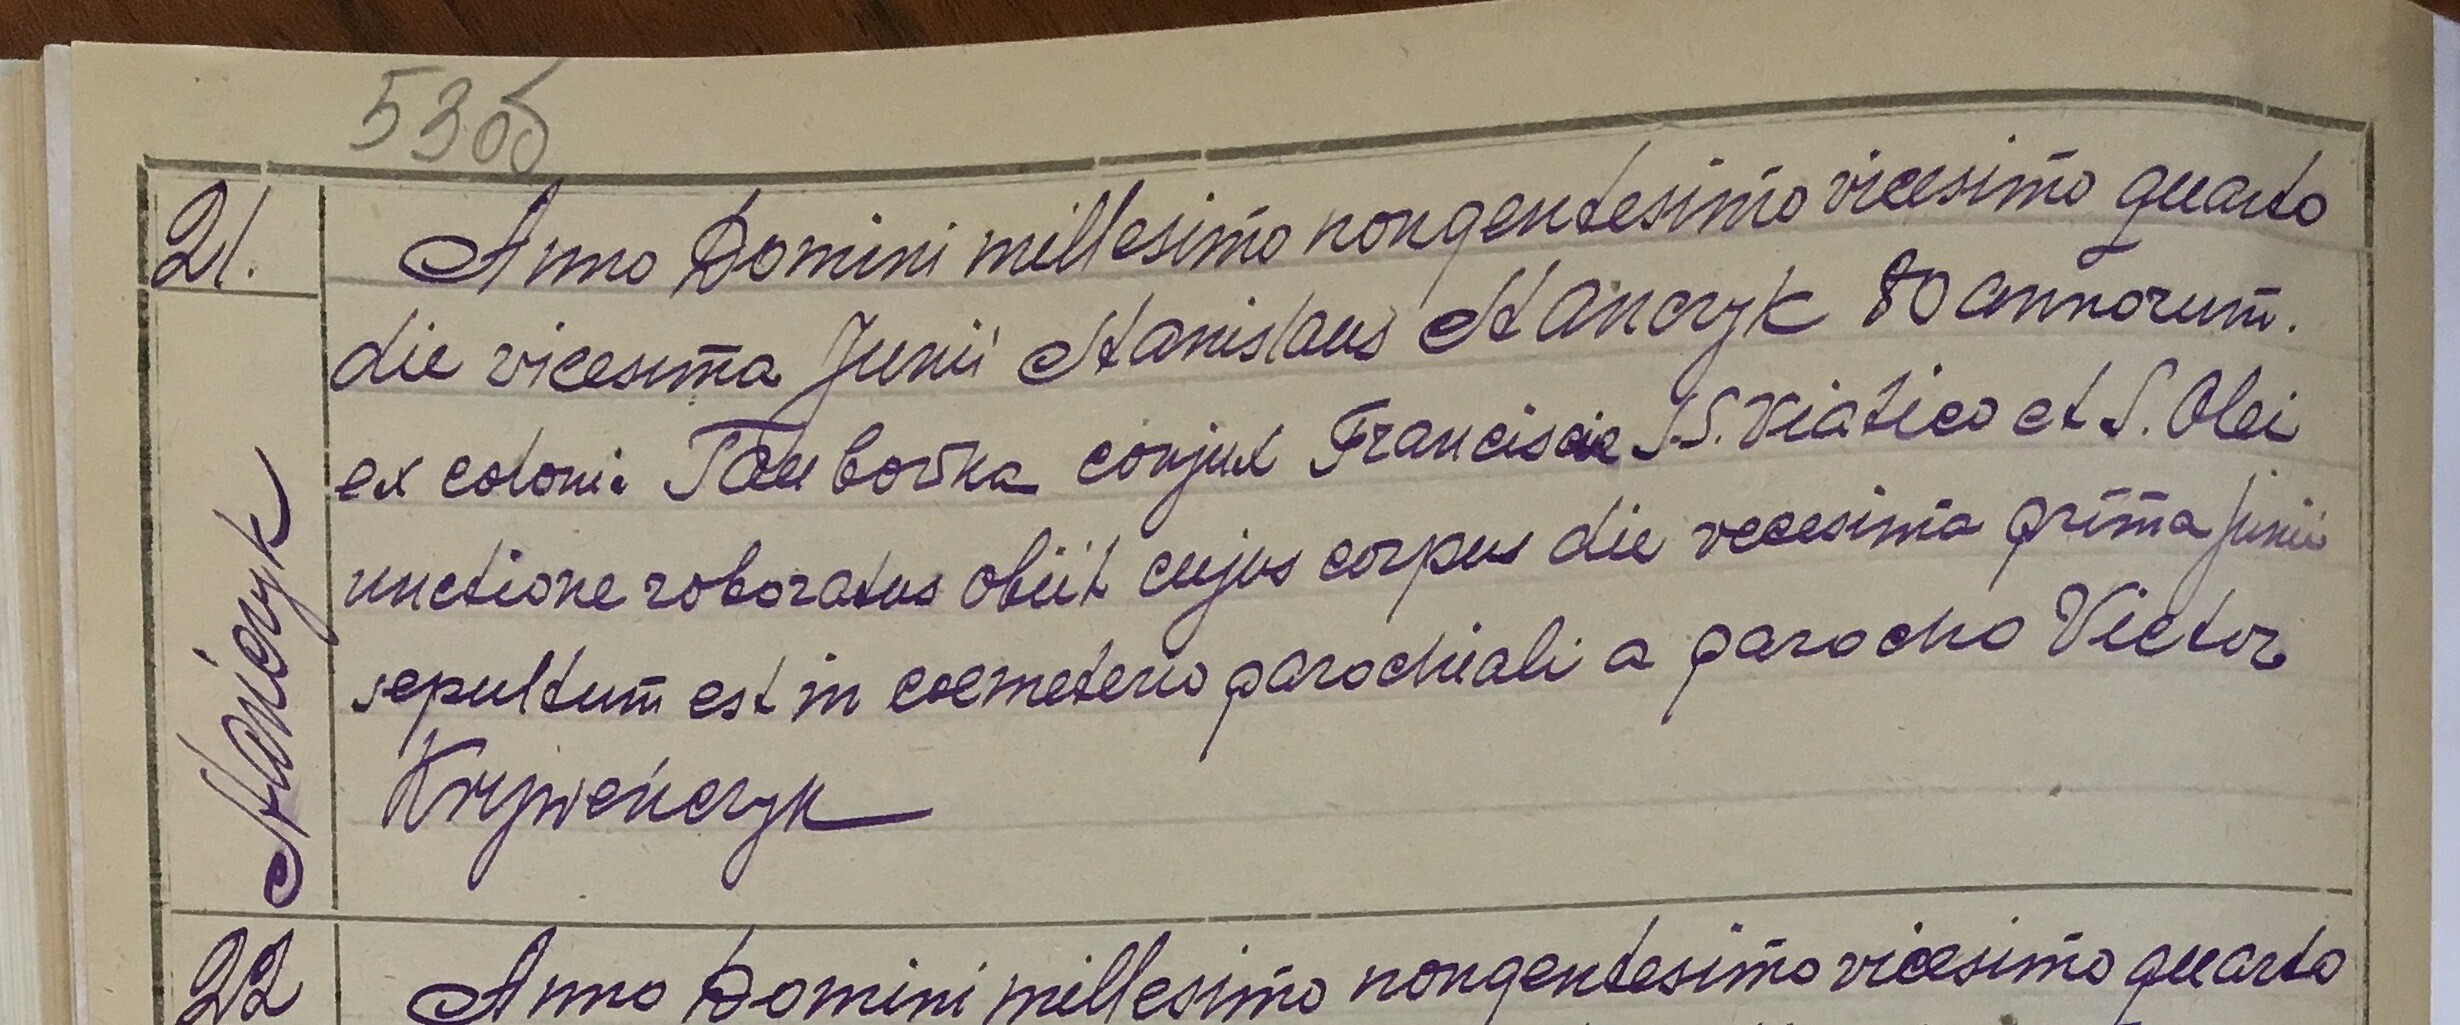 53об
21.
Anno Domini millesimo nongentesimo vicesimo quarto
die vicesima Junii Stanislaus Stanczyk 80 annorum.
ex coloni. conjux Franciscae S.S. Viatico et S. Olei
unctione roboratus obiit cujus corpus die vecesima prima Junii
sepultum est in coemeterio parochiali a parocho Victor
Krzyweńczyk
Stańczyk
22
Anno Domini millesimo nongentesimo vicesimo quarto